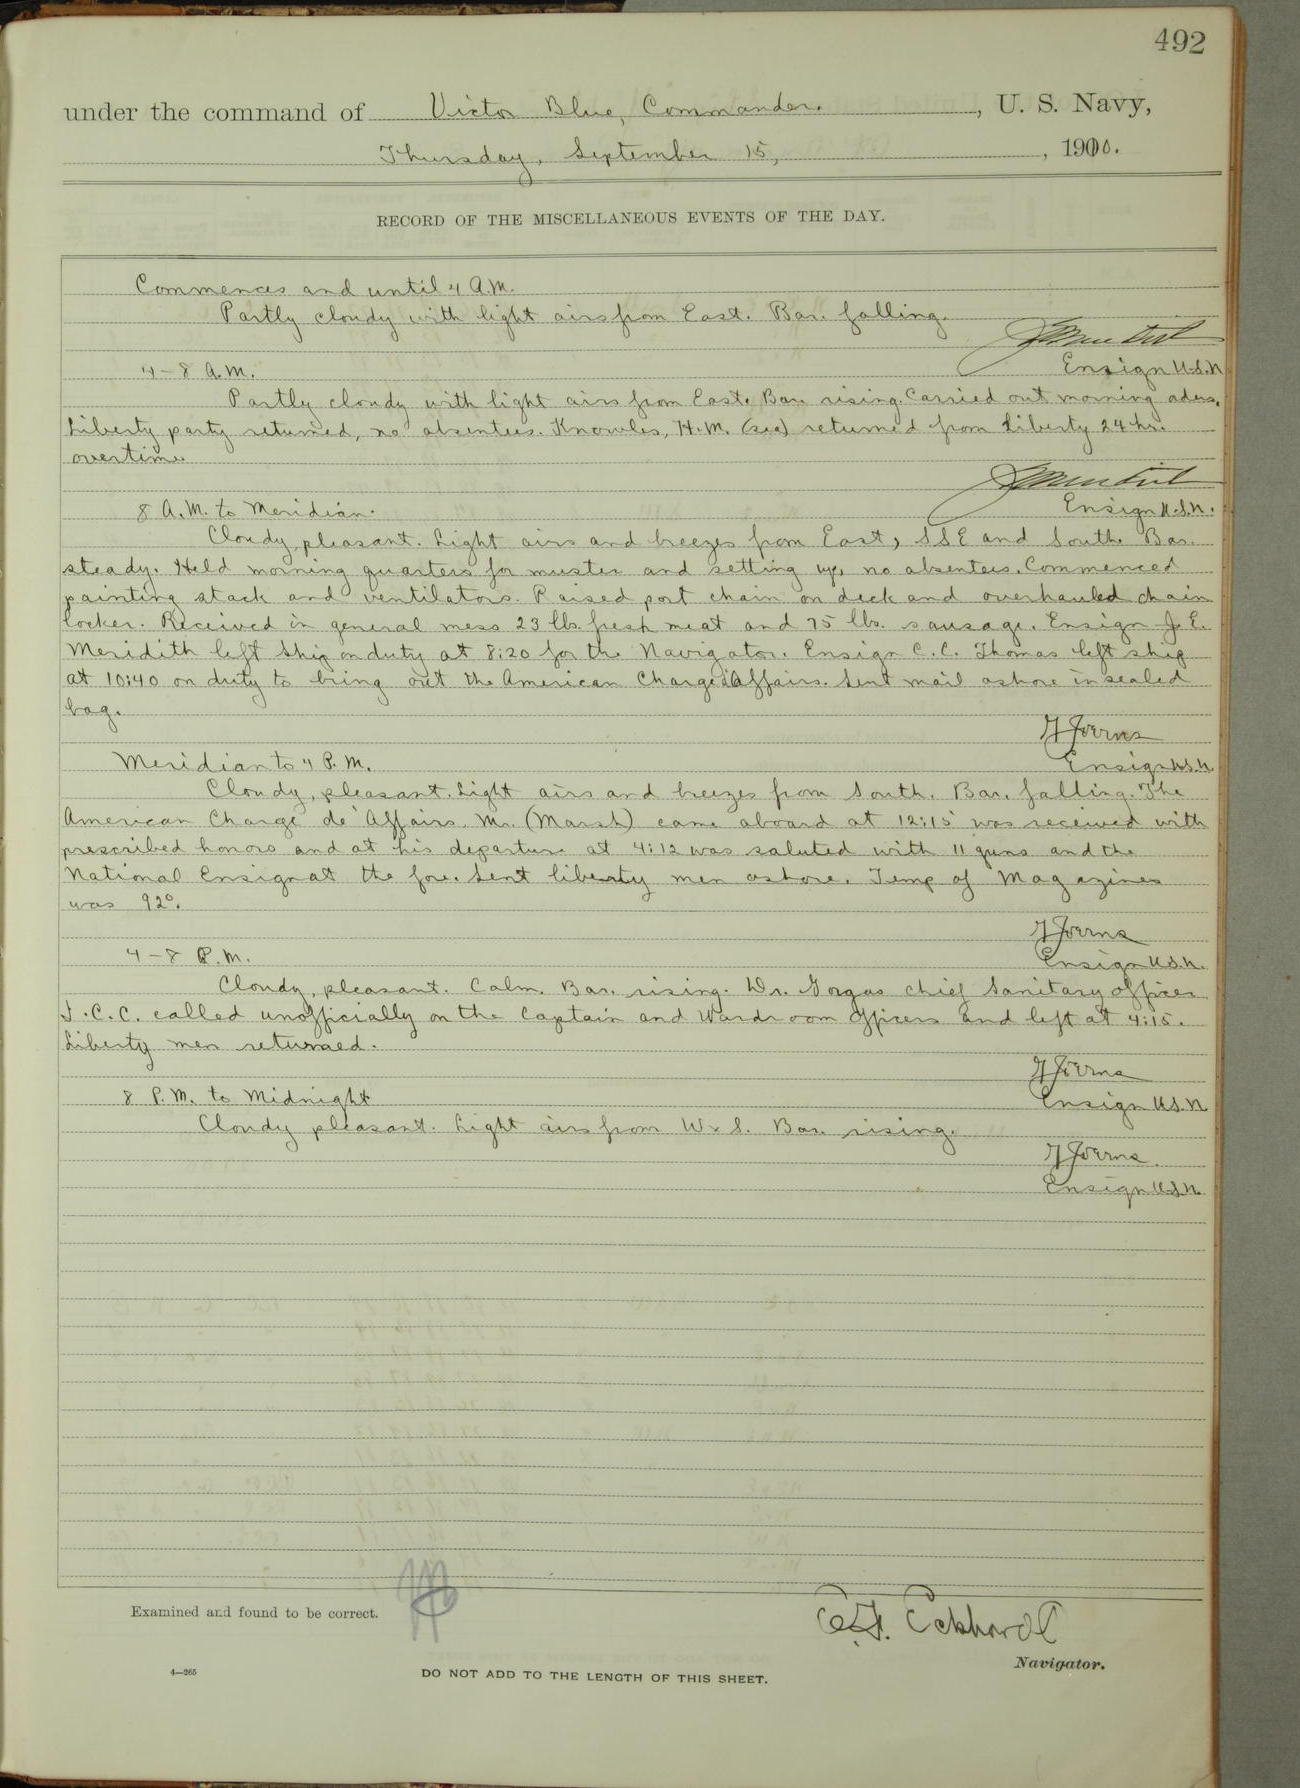 492
under the command of Victor Blue, Commander., U. S. Navy,
Thursday, September 15, , 1910.
RECORD OF THE MISCELLANEOUS EVENTS OF THE DAY.
Commences and until 4 A.M.
Partly cloudy with light airs from East. Bar. falling.
4-8 A.M.
Ensign U.S.N
Partly cloudy with light airs from East. Bar. rising. Carried out morning
Liberty party returned, no absentees. Knowles, H.M. (sea) returned from liberty 24 hr.
overtime.
8 A.M. to Meridian.
Ensign U.S.N.
Cloudy, pleasant. Light airs and breezes from East, SSE and South. Bar.
steady. Held morning quarters for muster and setting up, no absentees. Commenced
painting stack and ventilators. Raised port chain on deck and overhauled chain
locker. Received in general mess 23 lbs. fresh meat and 75 lbs. sausage. Ensign J. E.
Meridith left ship on duty at 8:20 for the Navigator. Ensign C. C. Thomas left ship
at 10:40 on duty to bring out the American Charge d'Affairs. Sent mail ashore in sealed
bag.
Meridian to 4 P.M.
Ensign U.S.N.
Cloudy, pleasant. Light airs and breezes from South. Bar. falling. The
American Charge de' Affairs. Mr. (Marsh) came aboard at 12:15 was received with
prescribed honors and at his departure at 4:12 was saluted with 11 guns and the
National Ensign at the fore. Sent liberty men ashore. Temp of Magazines
was 92°.
4-8 P.M.
Ensign U.S.N.
Cloudy, pleasant. Calm. Bar. rising. Dr. Gorgas chief Sanitary officer
I.C.C. called unofficially on the Captain and Wardroom officers and left at 4:15.
Liberty men returned.
8 P.M. to Midnight
Ensign U.S.N
Cloudy pleasant. Light airs from W x S. Bar. rising.
Ensign U.S.N.
Examined and found to be correct.
E. F. Eckhardt
Navigator.
4—265
DO NOT ADD TO THE LENGTH OF THIS SHEET.